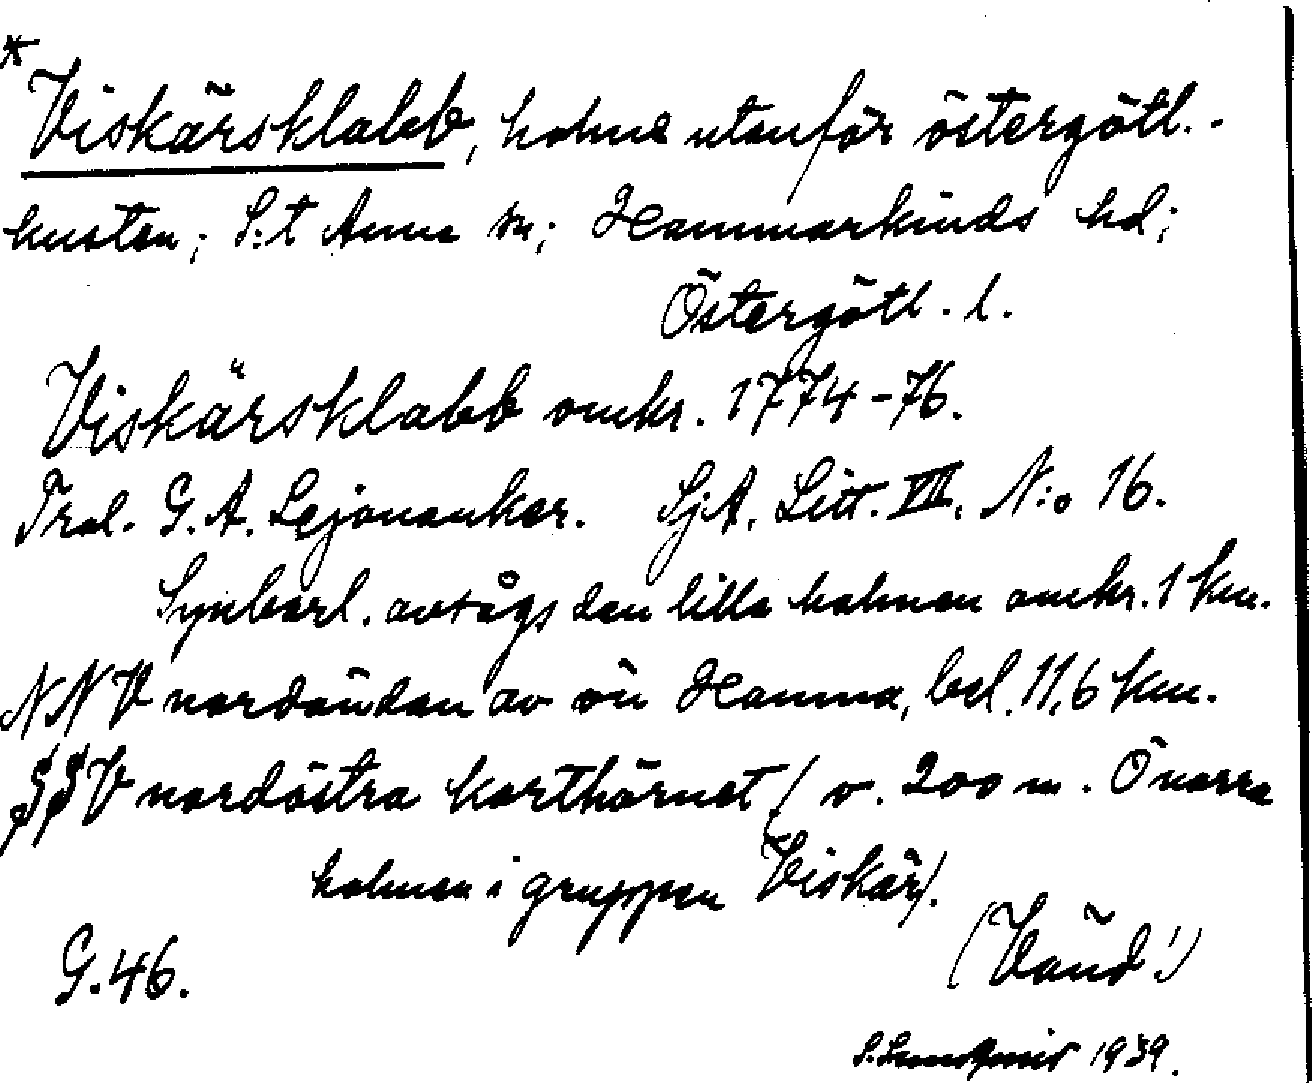 * Viskärsklabb, holme utanför östergötl.-
kusten; S:t Anna sn; Hammarkinds hd;
Östergötl. l.
Viskärsklabb omkr. 1774-76.
Tral. G. A. Lejonanker. SjA. Litt. VII. N:o 16.
Synbarl. avsågs den lilla holmen omkr. 1 km.
NNV nordändan av ön Hamna, bel. 11,6 km.
SSV nordöstra karthörnet / v. 200 m. Ö norra
holmen i gruppen Viskär/.
G. 46.
(Vänd!)
1939.